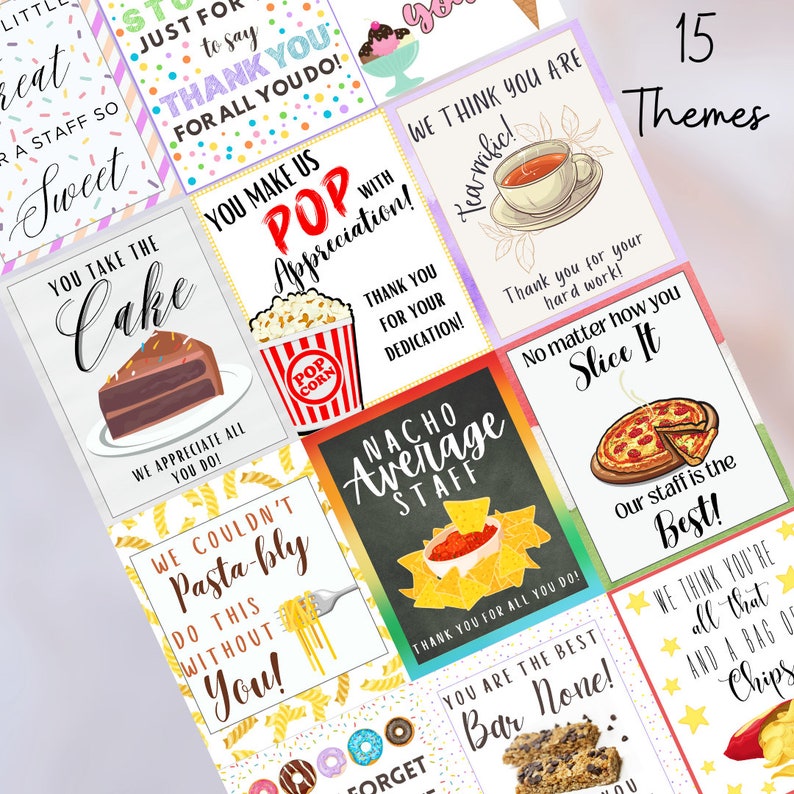 15
Themes
LITTLE
A STAFF SO
Sweet
JUST FOR
to say
THANK YOU
FOR ALL YOU DO!
you
YOU TAKE THE
Cake
WE APPRECIATE ALL
YOU DO!
YOU MAKE US
POP WITH
Appreciation!
THANK YOU
FOR YOUR
DEDICATION!
POP
CORN
WE THINK YOU ARE
tea-rrific!
Thank you for your
hard work!
WE COULDN'T
Pasta-bly
DO THIS
WITHOUT
You!
NACHO
Average
STAFF
THANK YOU FOR ALL YOU DO!
No matter how you
Slice It
Our staff is the
Best!
FORGET
YOU ARE THE BEST
Bar None!
WE THINK YOU'RE
all that
AND A BAG OF
Chips